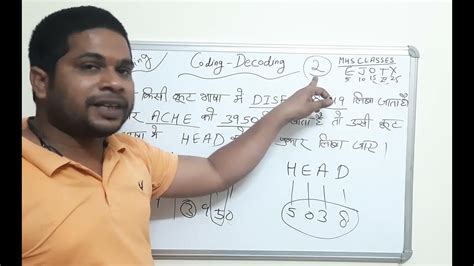 Coding-Decoding 2 MHS CLASSES
E J O T Y
5 10 15 20 25
किसी कूट भाषा में DISE 19 लिखा जाता है
ACHE को 3950 है तो उसी कूट
भाषा में HEAD को प्रकार लिखा जाए।
H E A D
3 9 5 0 5 0 3 8